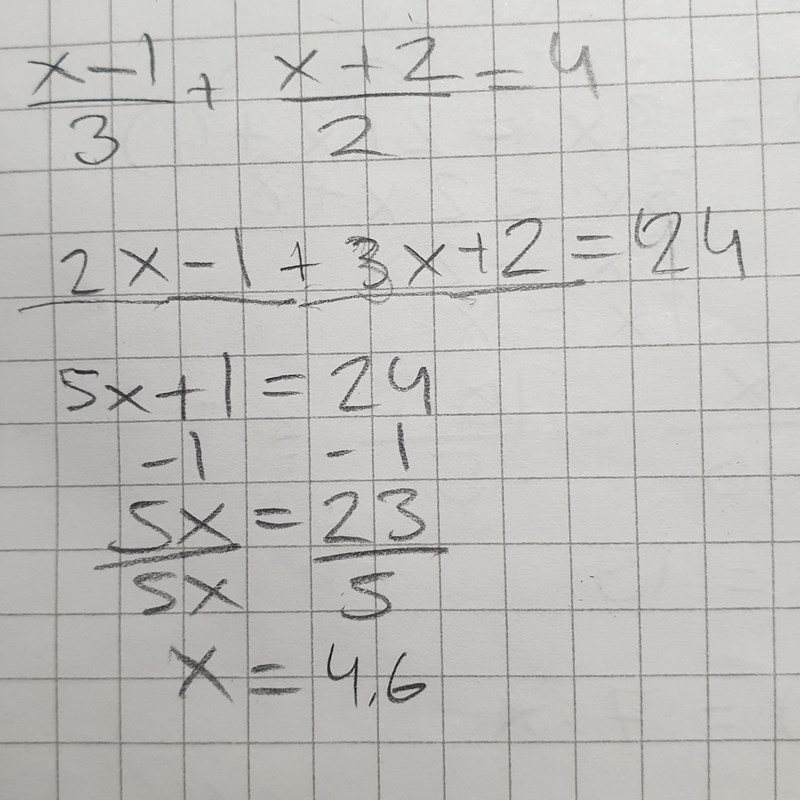 x-1/3 + x+2/2 = 4
2x-1 + 3x+2 = 24
5x+1 = 24
-1 -1
5x/5x = 23/5
x = 4,6